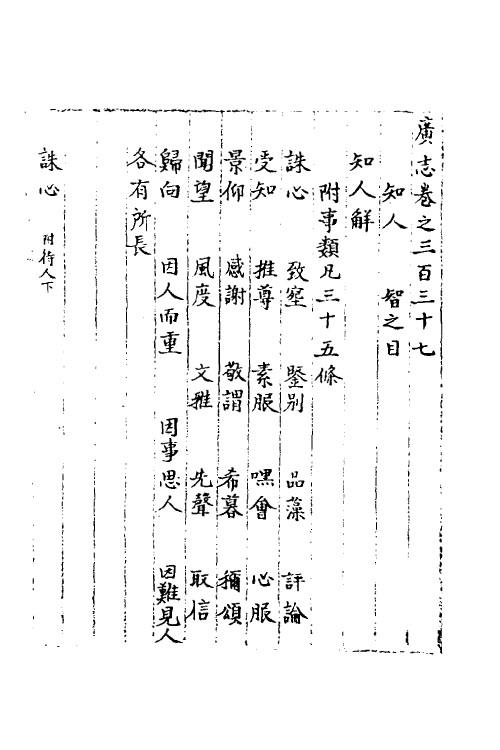 廣志卷之三百三十七
知人 智之目
知人解
附事類凡三十五條
誅心 致窒 鑒别 品藻 評論
受知 推尊 素服 嘿會 心服
景仰 感謝 敬謂 希暮 稱頌
聞望 風度 文推 先聲 取信
歸向 因人而重 因事思人 因難見人
各有所長
誅心 附待人下